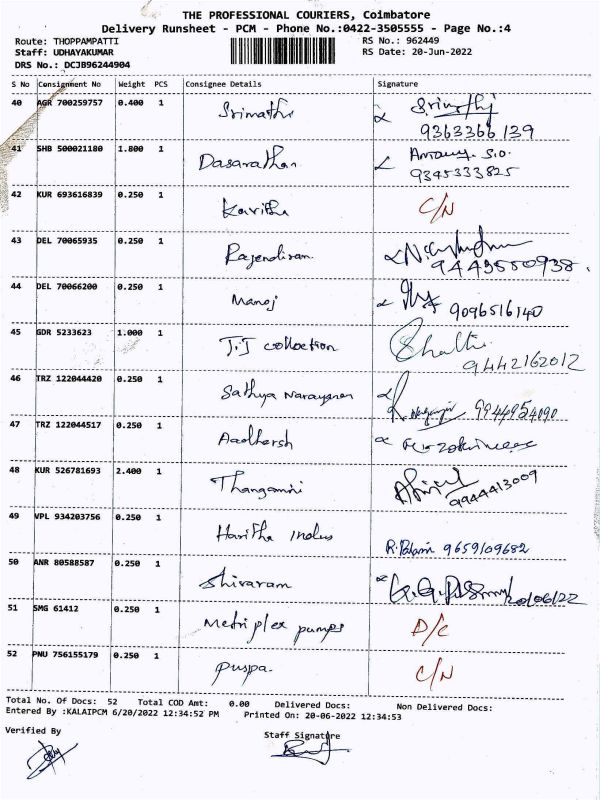 THE PROFESSIONAL COURIERS, Coimbatore
Delivery Runsheet - PCM - Phone No.:0422-3505555 - Page No.:4
Route: THOPPAMPATTI RS No.: 962449
Staff: UDHAYAKUMAR RS Date: 20-Jun-2022
DRS No.: DCJB96244904
S No Consignment No Weight PCS Consignee Details Signature
40 AGR 700259757 0.400 1 Srimathi
9363366139
41 SHB 500021180 1.800 1 Dasarathan
9345333825
42 KUR 693616839 0.250 1 Kavitha C/N
43 DEL 70065935 0.250 1 Rajendiran
9443550938
44 DEL 70066200 0.250 1 Manoj 9096516140
45 GDR 5233623 1.000 1 J.J collection
9442162012
46 TRZ 122044420 0.250 1 Sathya Narayanan 9944954090
47 TRZ 122044517 0.250 1 Aadharsh
48 KUR 526781693 2.400 1 Thangamni
9944413009
49 VPL 934203756 0.250 1 Haritha Indus
9659109682
50 ANR 80588587 0.250 1 Shivaram 20/06/22
51 SMG 61412 0.250 1 Metriplex pumps D/C
52 PNU 756155179 0.250 1 puspa. C/N
Total No. Of Docs: 52 Total COD Amt: 0.00 Delivered Docs: Non Delivered Docs:
Entered By :KALAIPCM 6/20/2022 12:34:52 PM Printed On: 20-06-2022 12:34:53
Verified By Staff Signature